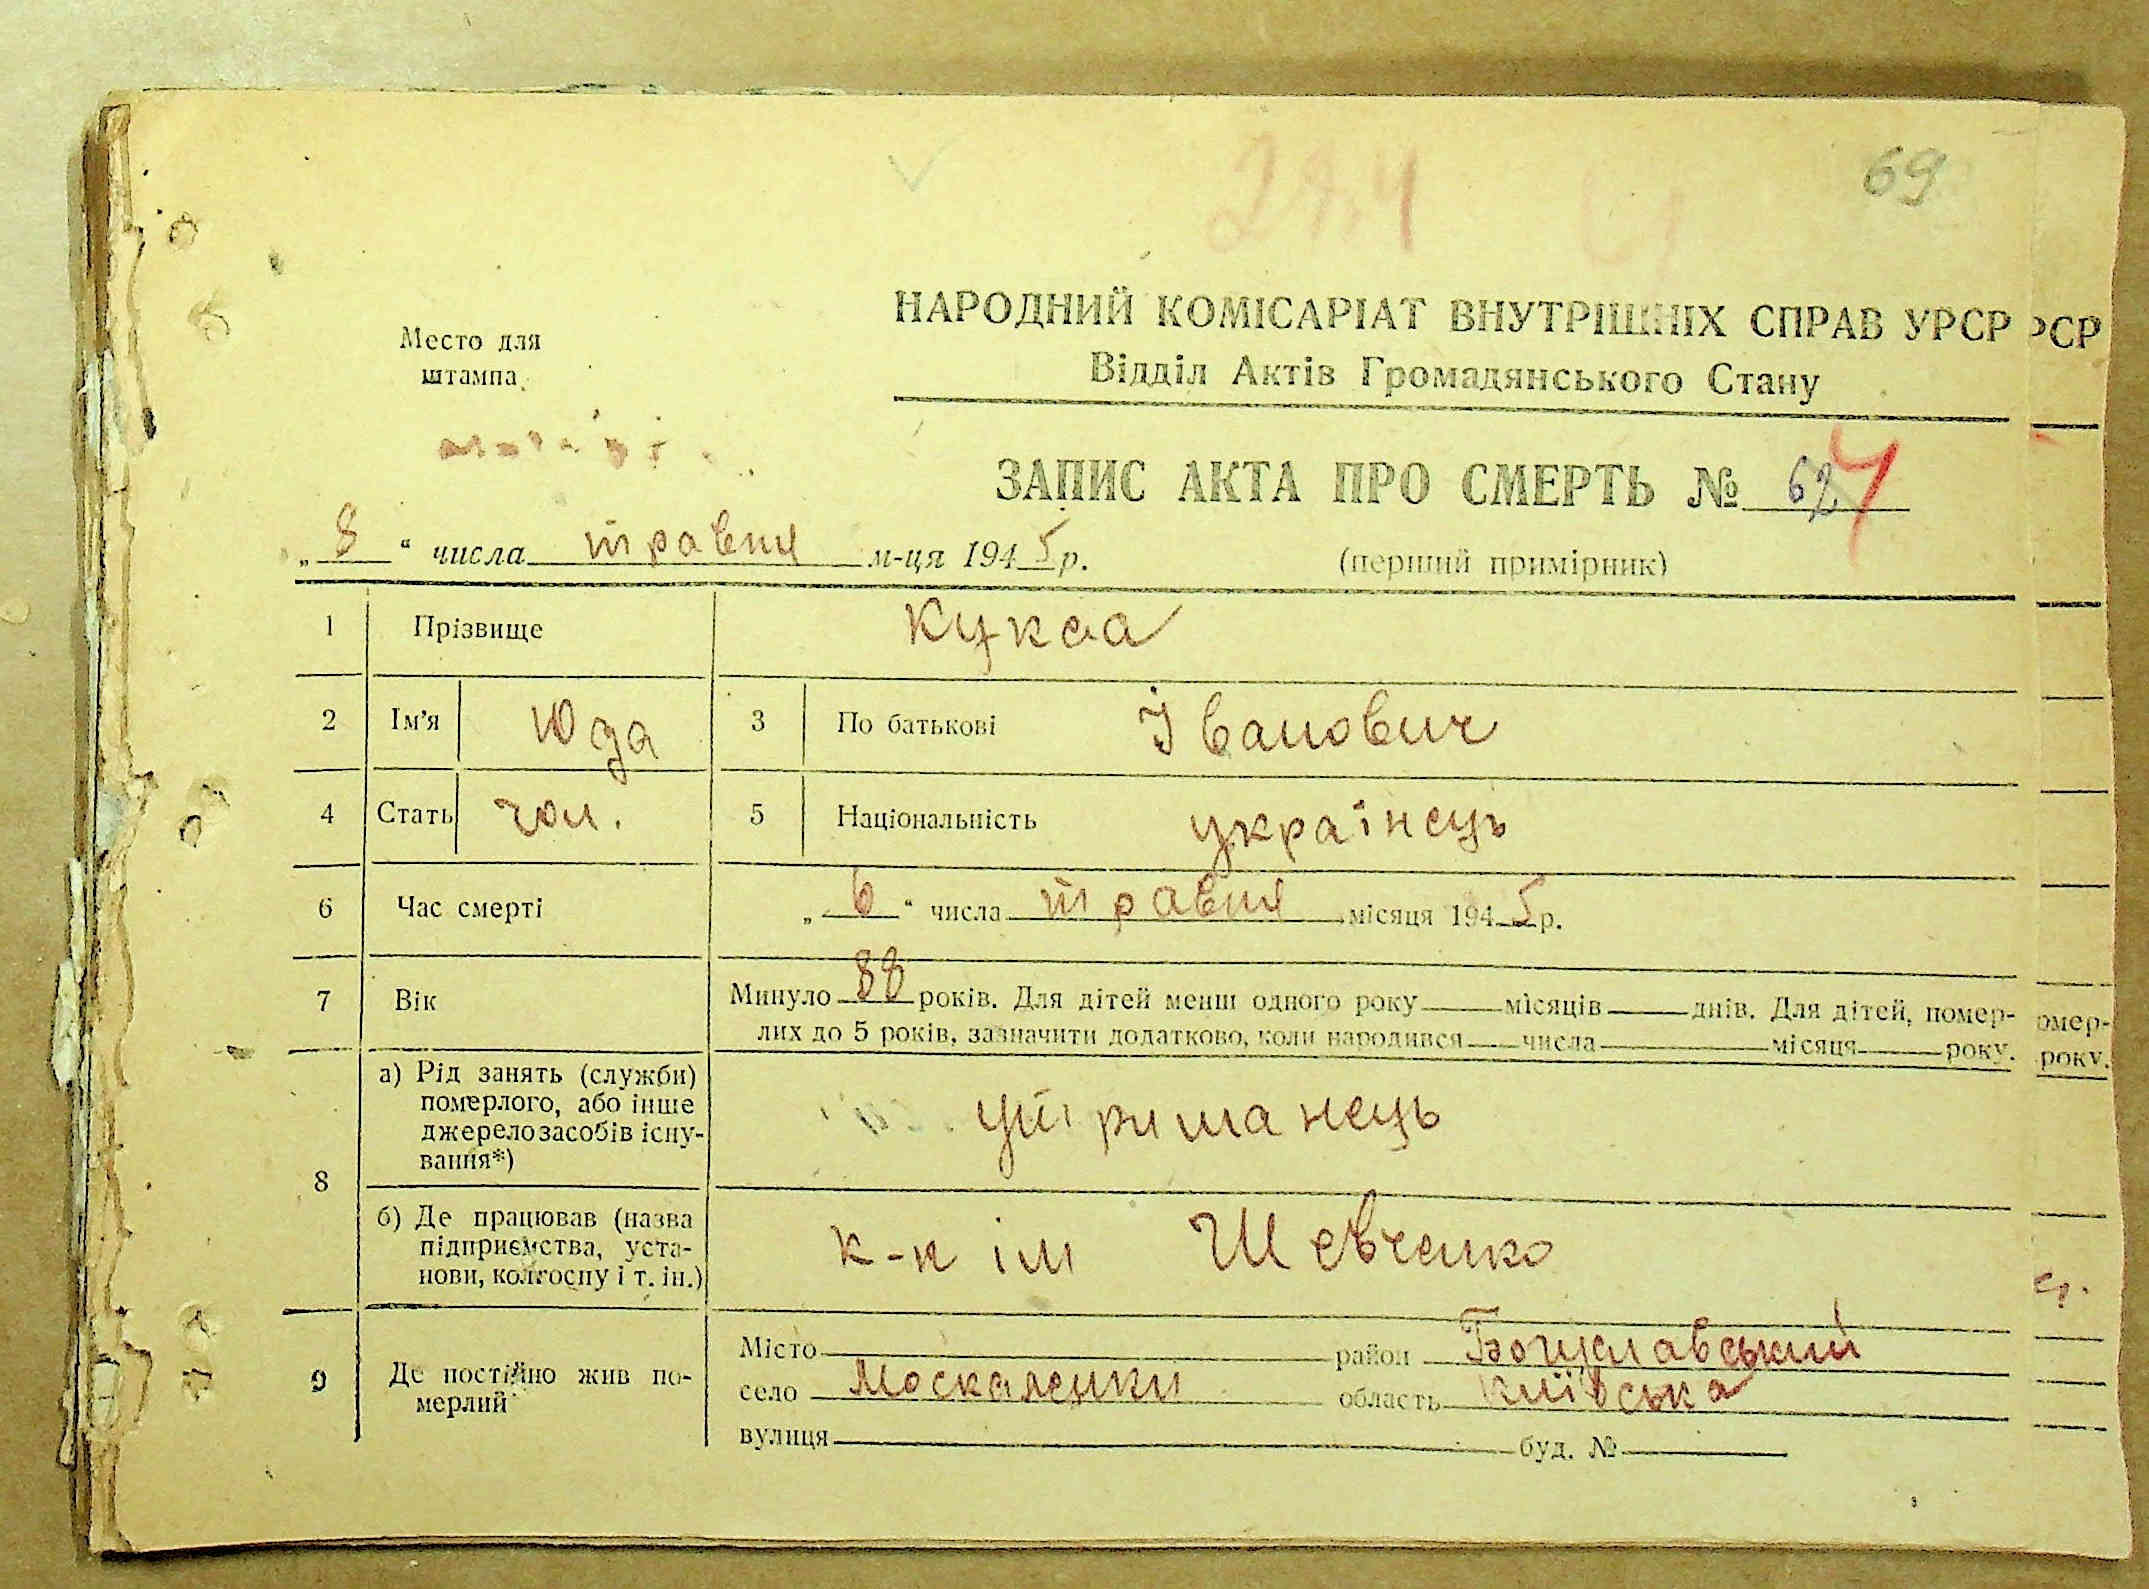 69
НАРОДНИЙ КОМІСАРІАТ ВНУТРІШНІХ СПРАВ УРСР РСР
Место для штампа
Відділ Актів Громадянського Стану
ЗАПИС АКТА ПРО СМЕРТЬ №
„8“ числа травня м-ця 1945 р.
(перший примірник)
1 Прізвище Кукса
2 Ім'я Юда 3 По батькові Іванович
4 Стать чол. 5 Національність українець
6 Час смерті „6“ числа травня місяця 1945 р.
7 Вік Минуло 88 років. Для дітей менш одного року місяців днів. Для дітей, помер- омер-
лих до 5 років, зазначити додатково, коли народився числа місяця року. року.
8 а) Рід занять (служби) померлого, або інше джерело засобів існу-вання*) утриманець
б) Де працював (назва підприємства, уста-нови, колгоспу і т. ін.) к-п ім Шевченко
9 Де постійно жив по-мерлий Місто район Богуславський
село Москаленки область Київська
вулиця буд. №